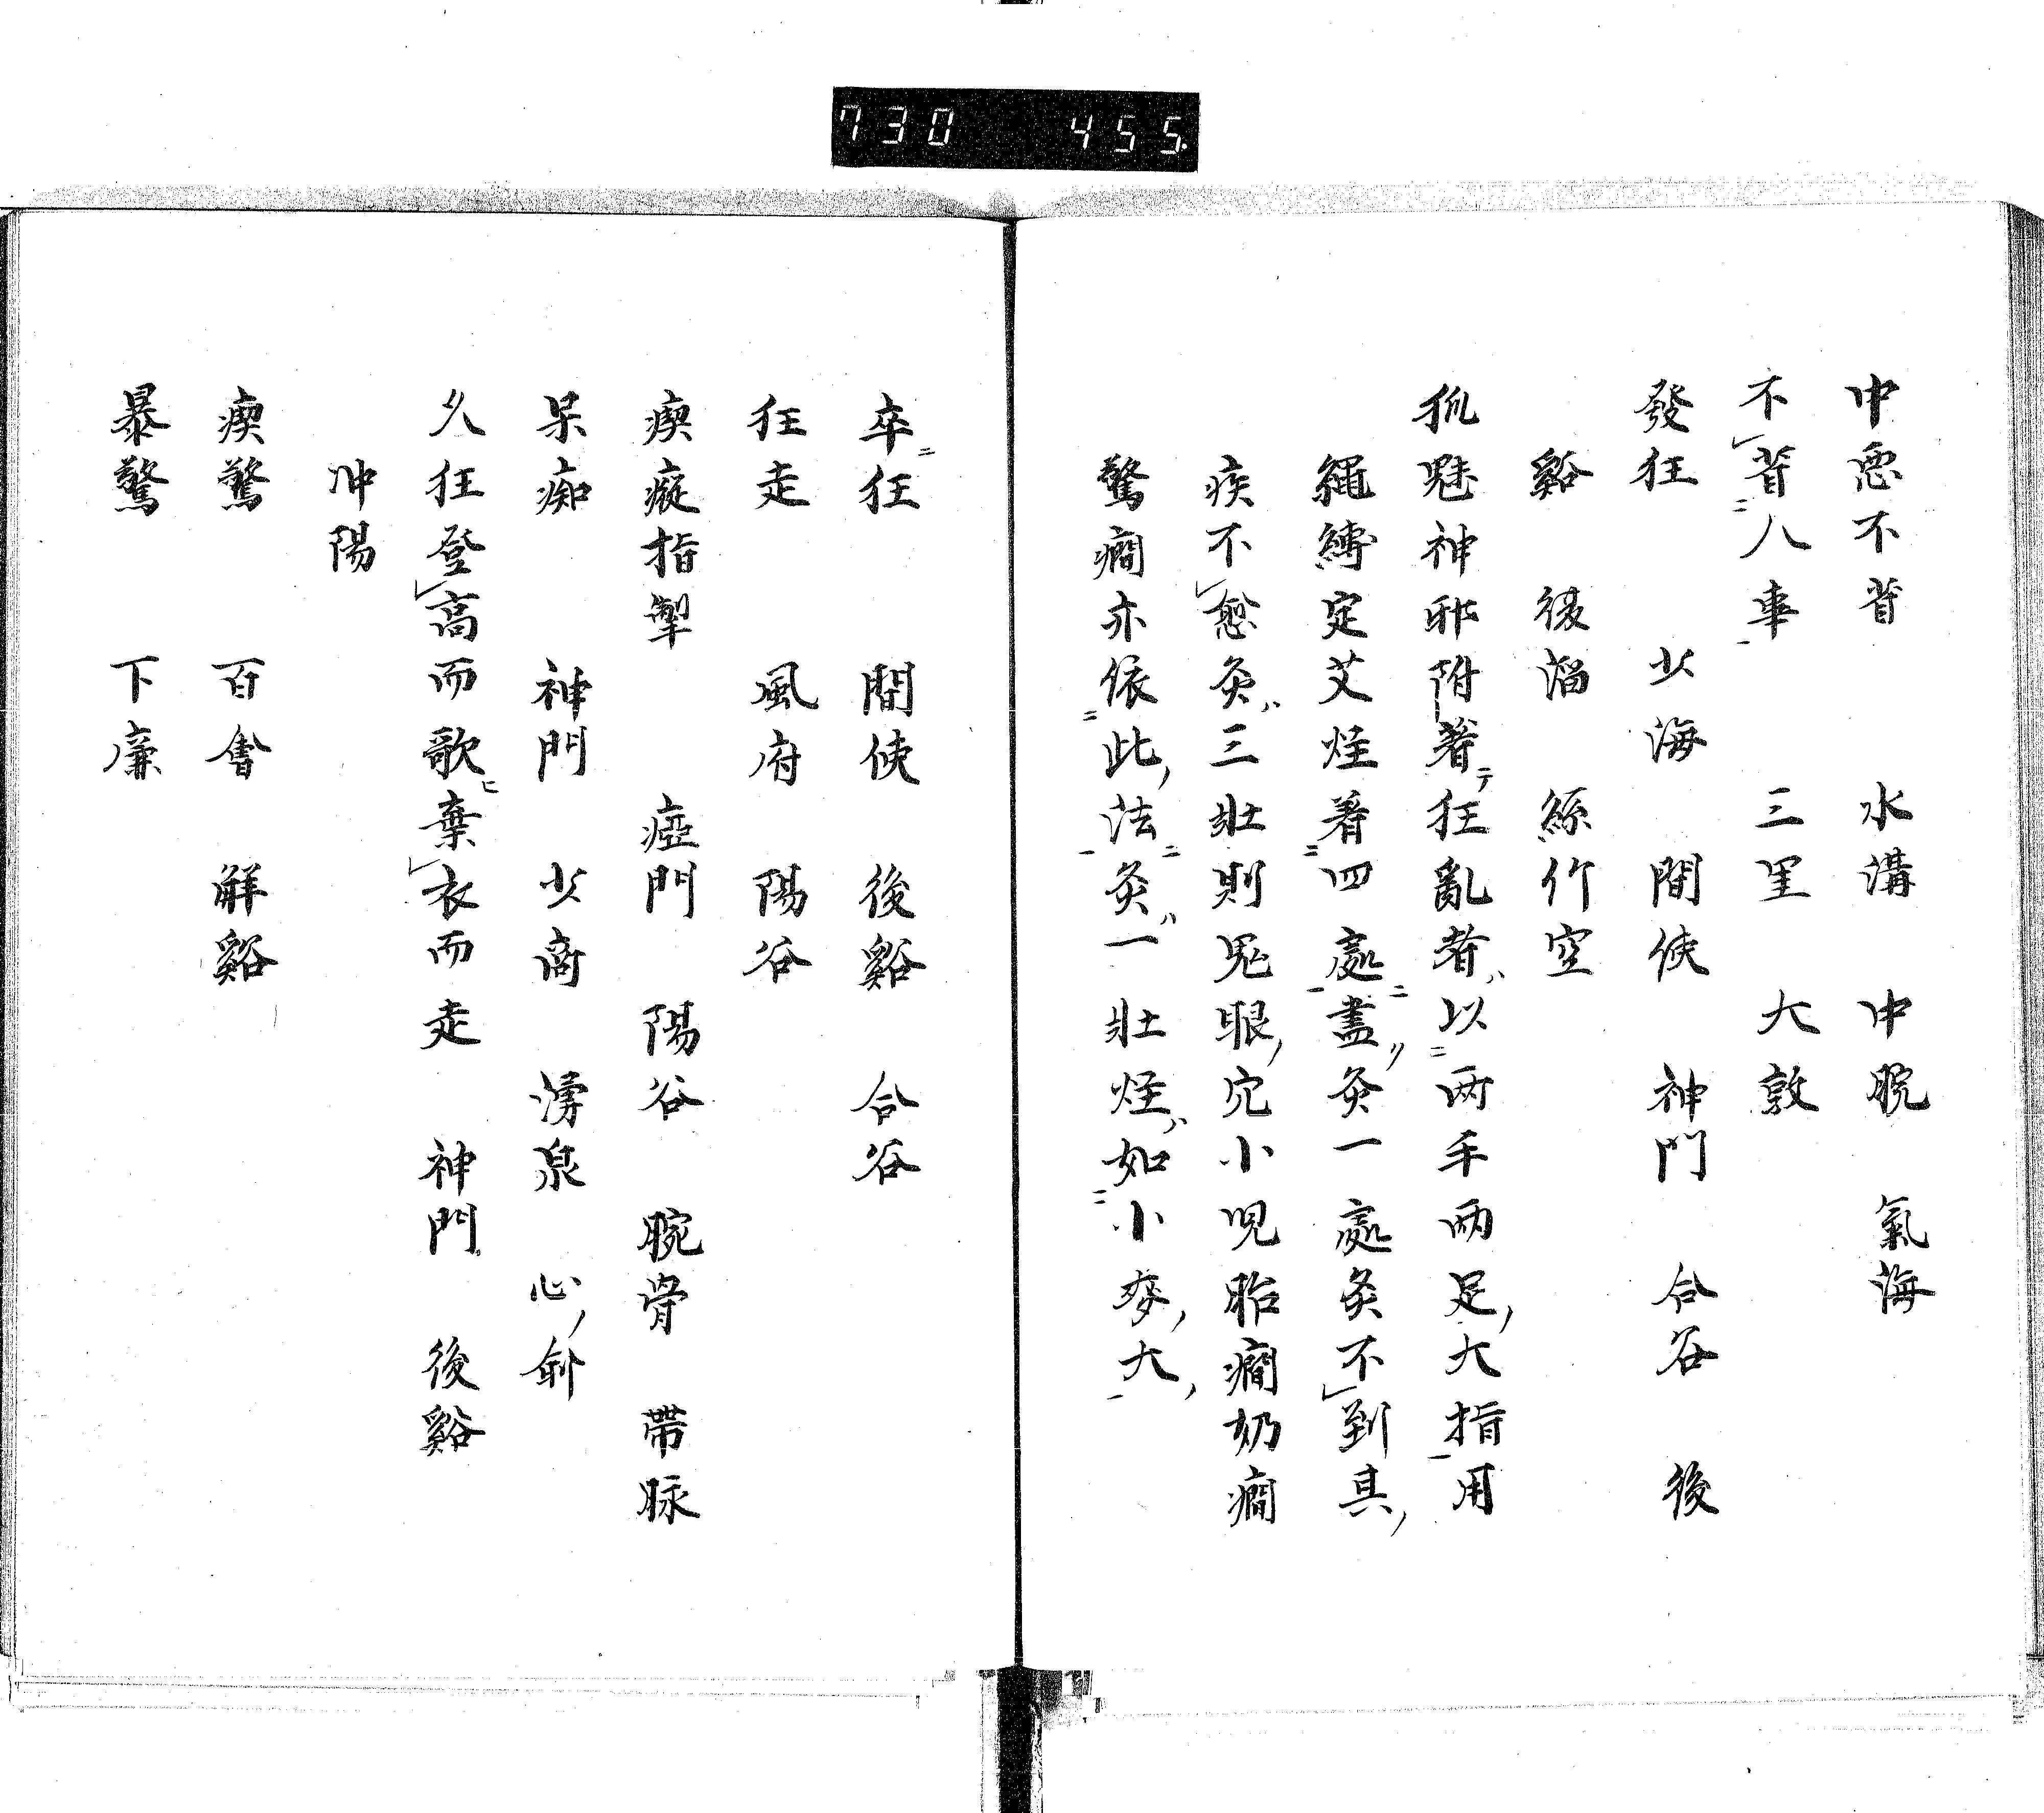 730 455
中惡不省 水溝 中脘 氣海
不省人事 三里 大敦
發狂 少海 間使 神門 合谷 後
谿 復溜 絲竹空
狐魅神邪附著テ狂亂者ハ以両手両足ノ大指用
繩縛定艾炷着四處盡ク灸一處灸不到其ノ
疾不愈灸ハ三壯則鬼眼ノ穴小児胎癇奶癇
驚癇亦依此ノ法灸ハ一壯炷ハ如小麥ノ大ノ
卒ニ狂 間使 後谿 合谷
狂走 風府 陽谷
瘈瘲指掣 瘂門 陽谷 腕骨 帶脉
呆痴 神門 少商 湧泉 心ノ俞
久狂登高而歌ヒ棄衣而走 神門 後谿
冲陽
瘈驚 百會 解谿
暴驚 下廉